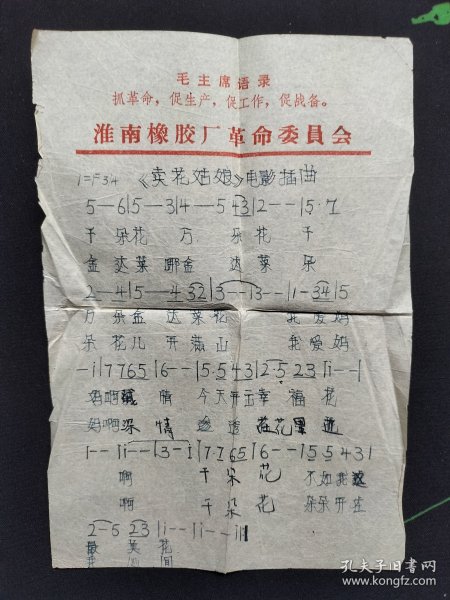 毛主席语录
抓革命，促生产，促工作，促战备。
淮南橡胶厂革命委員会
1=F 3/4 《卖花姑娘》电影插曲
5—6|5—3|4—5 43|2——|5·7
千 朵花 万 朵 花 千
金 达莱 哪金 达 莱 朵
2—4|5—4 32|3—|3——|1—34|5
万 朵金 达 莱花 我 爱妈
朵 花儿 开 满山 我 爱妈
—i|7765|6——|5·543|2·5 23|i——|
妈啊 情 今天 幸 福 花
妈啊深 情 花里
i——|i——|3—i|7·7 65|6——|5 5 4 3 1
啊 千 朵 花 不如我
啊 千 朵 花 朵朵开在
2—5 23|i——|i——i||
最 美 花
间
孔夫子旧书网
book.kongfz.com